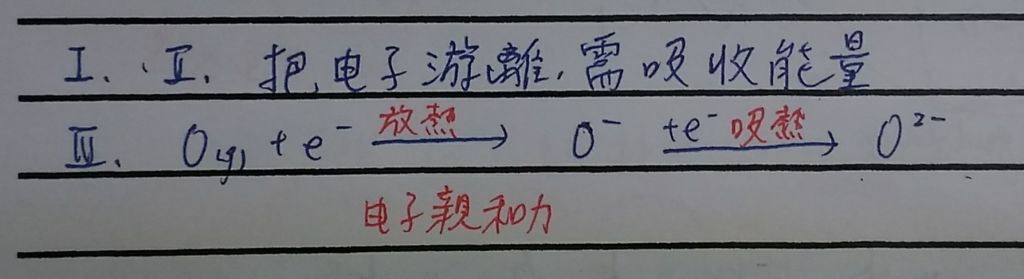 I. II. 把电子游離,需吸收能量
III. O(g) + e⁻ 放熱→ O⁻ +e⁻ 吸熱→ O²⁻
电子親和力